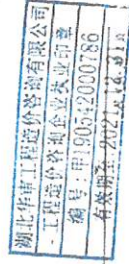 湖北华审工程造价咨询有限公司
工程造价咨询企业执业印章
编号:甲190542000786
有效期至:2021.12.31